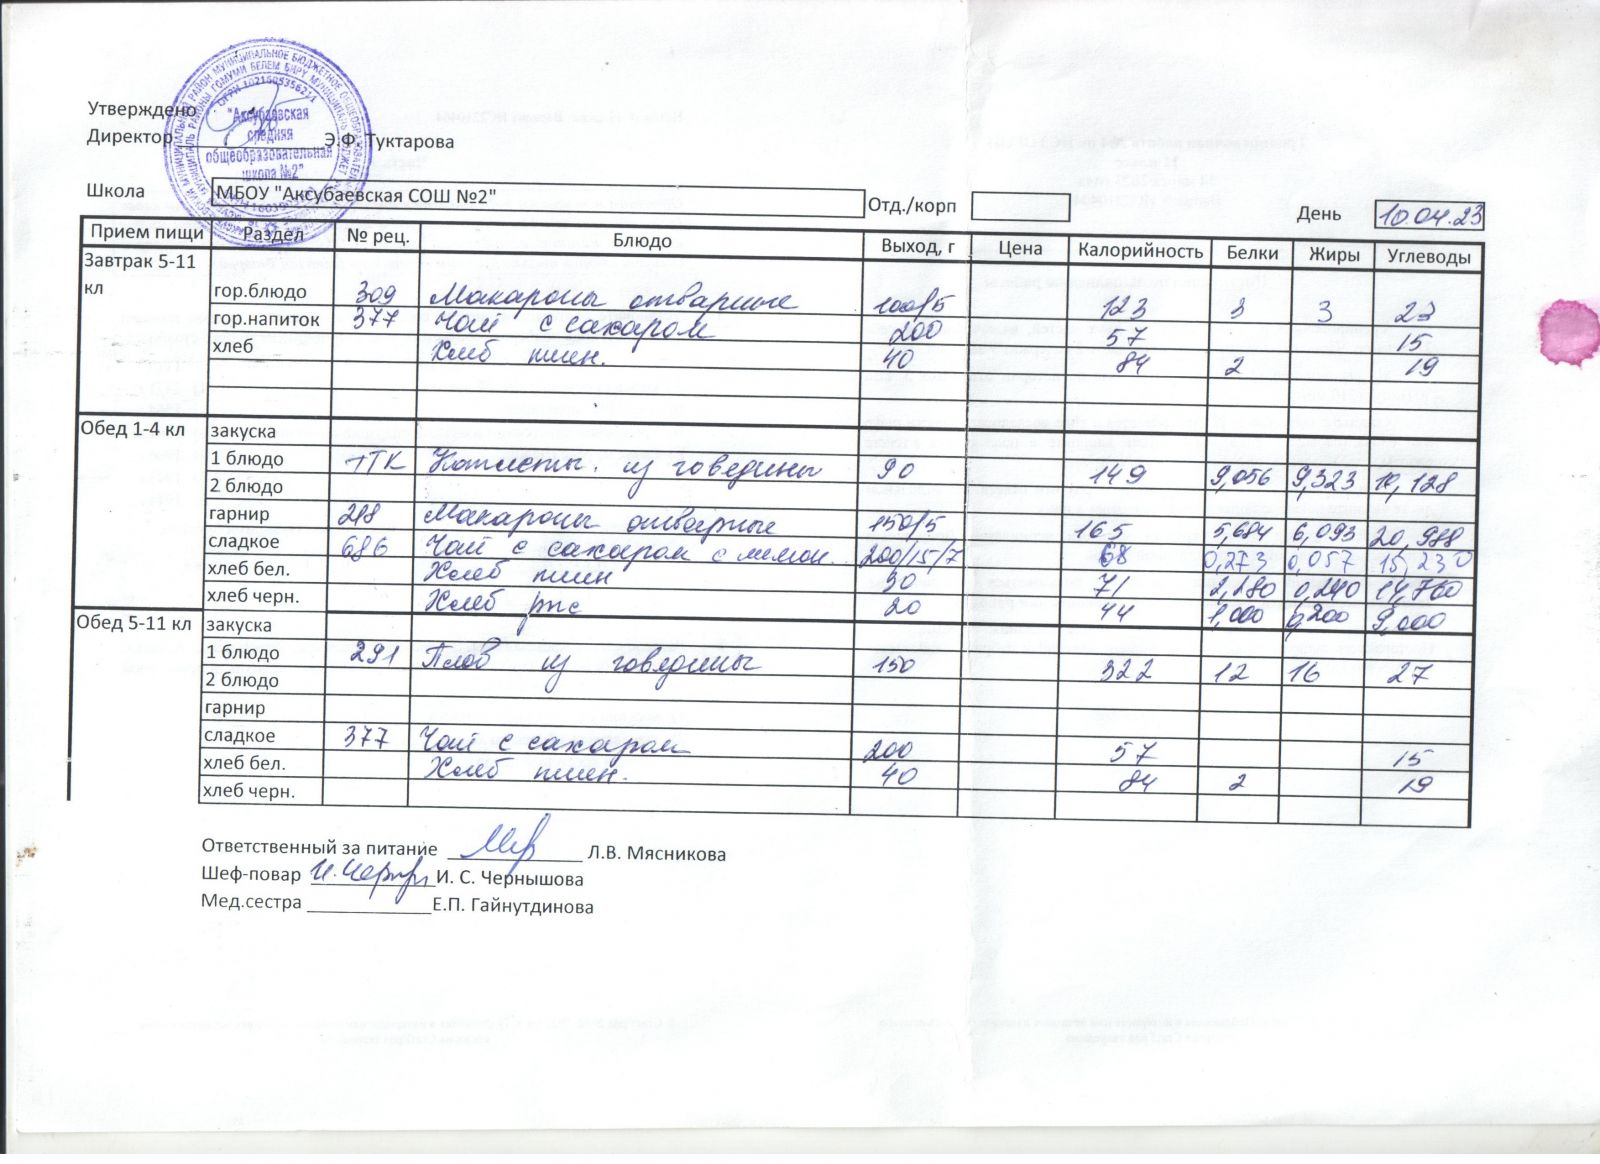 Утверждено
Директор Э.Ф. Туктарова
"Аксубаевская
средняя
общеобразовательная
школа №2"
Школа МБОУ "Аксубаевская СОШ №2" Отд./корп День 10.04.23
Прием пищи Раздел № рец. Блюдо Выход, г Цена Калорийность Белки Жиры Углеводы
Завтрак 5-11
кл
гор.блюдо 309 Макароны отварные 100/5 123 3 3 23
гор.напиток 377 Чай с сахаром 200 57 15
хлеб Хлеб пшен. 40 84 2 19
Обед 1-4 кл закуска
1 блюдо ТТК Котлеты из говядины 90 149 9,056 9,323 10,128
2 блюдо
гарнир 218 Макароны отварные 150/5 165 5,684 6,093 20,988
сладкое 686 Чай с сахаром с лимон. 200/15/7 68 0,273 0,057 15,230
хлеб бел. Хлеб пшен 30 71 2,280 0,240 14,760
хлеб черн. Хлеб рж 20 44 1,000 0,200 9,000
Обед 5-11 кл закуска
1 блюдо 291 Плов из говядины 150 322 12 16 27
2 блюдо
гарнир
сладкое 377 Чай с сахаром 200 57 15
хлеб бел. Хлеб пшен. 40 84 2 19
хлеб черн.
Ответственный за питание Л.В. Мясникова
Шеф-повар И. С. Чернышова
Мед.сестра Е.П. Гайнутдинова